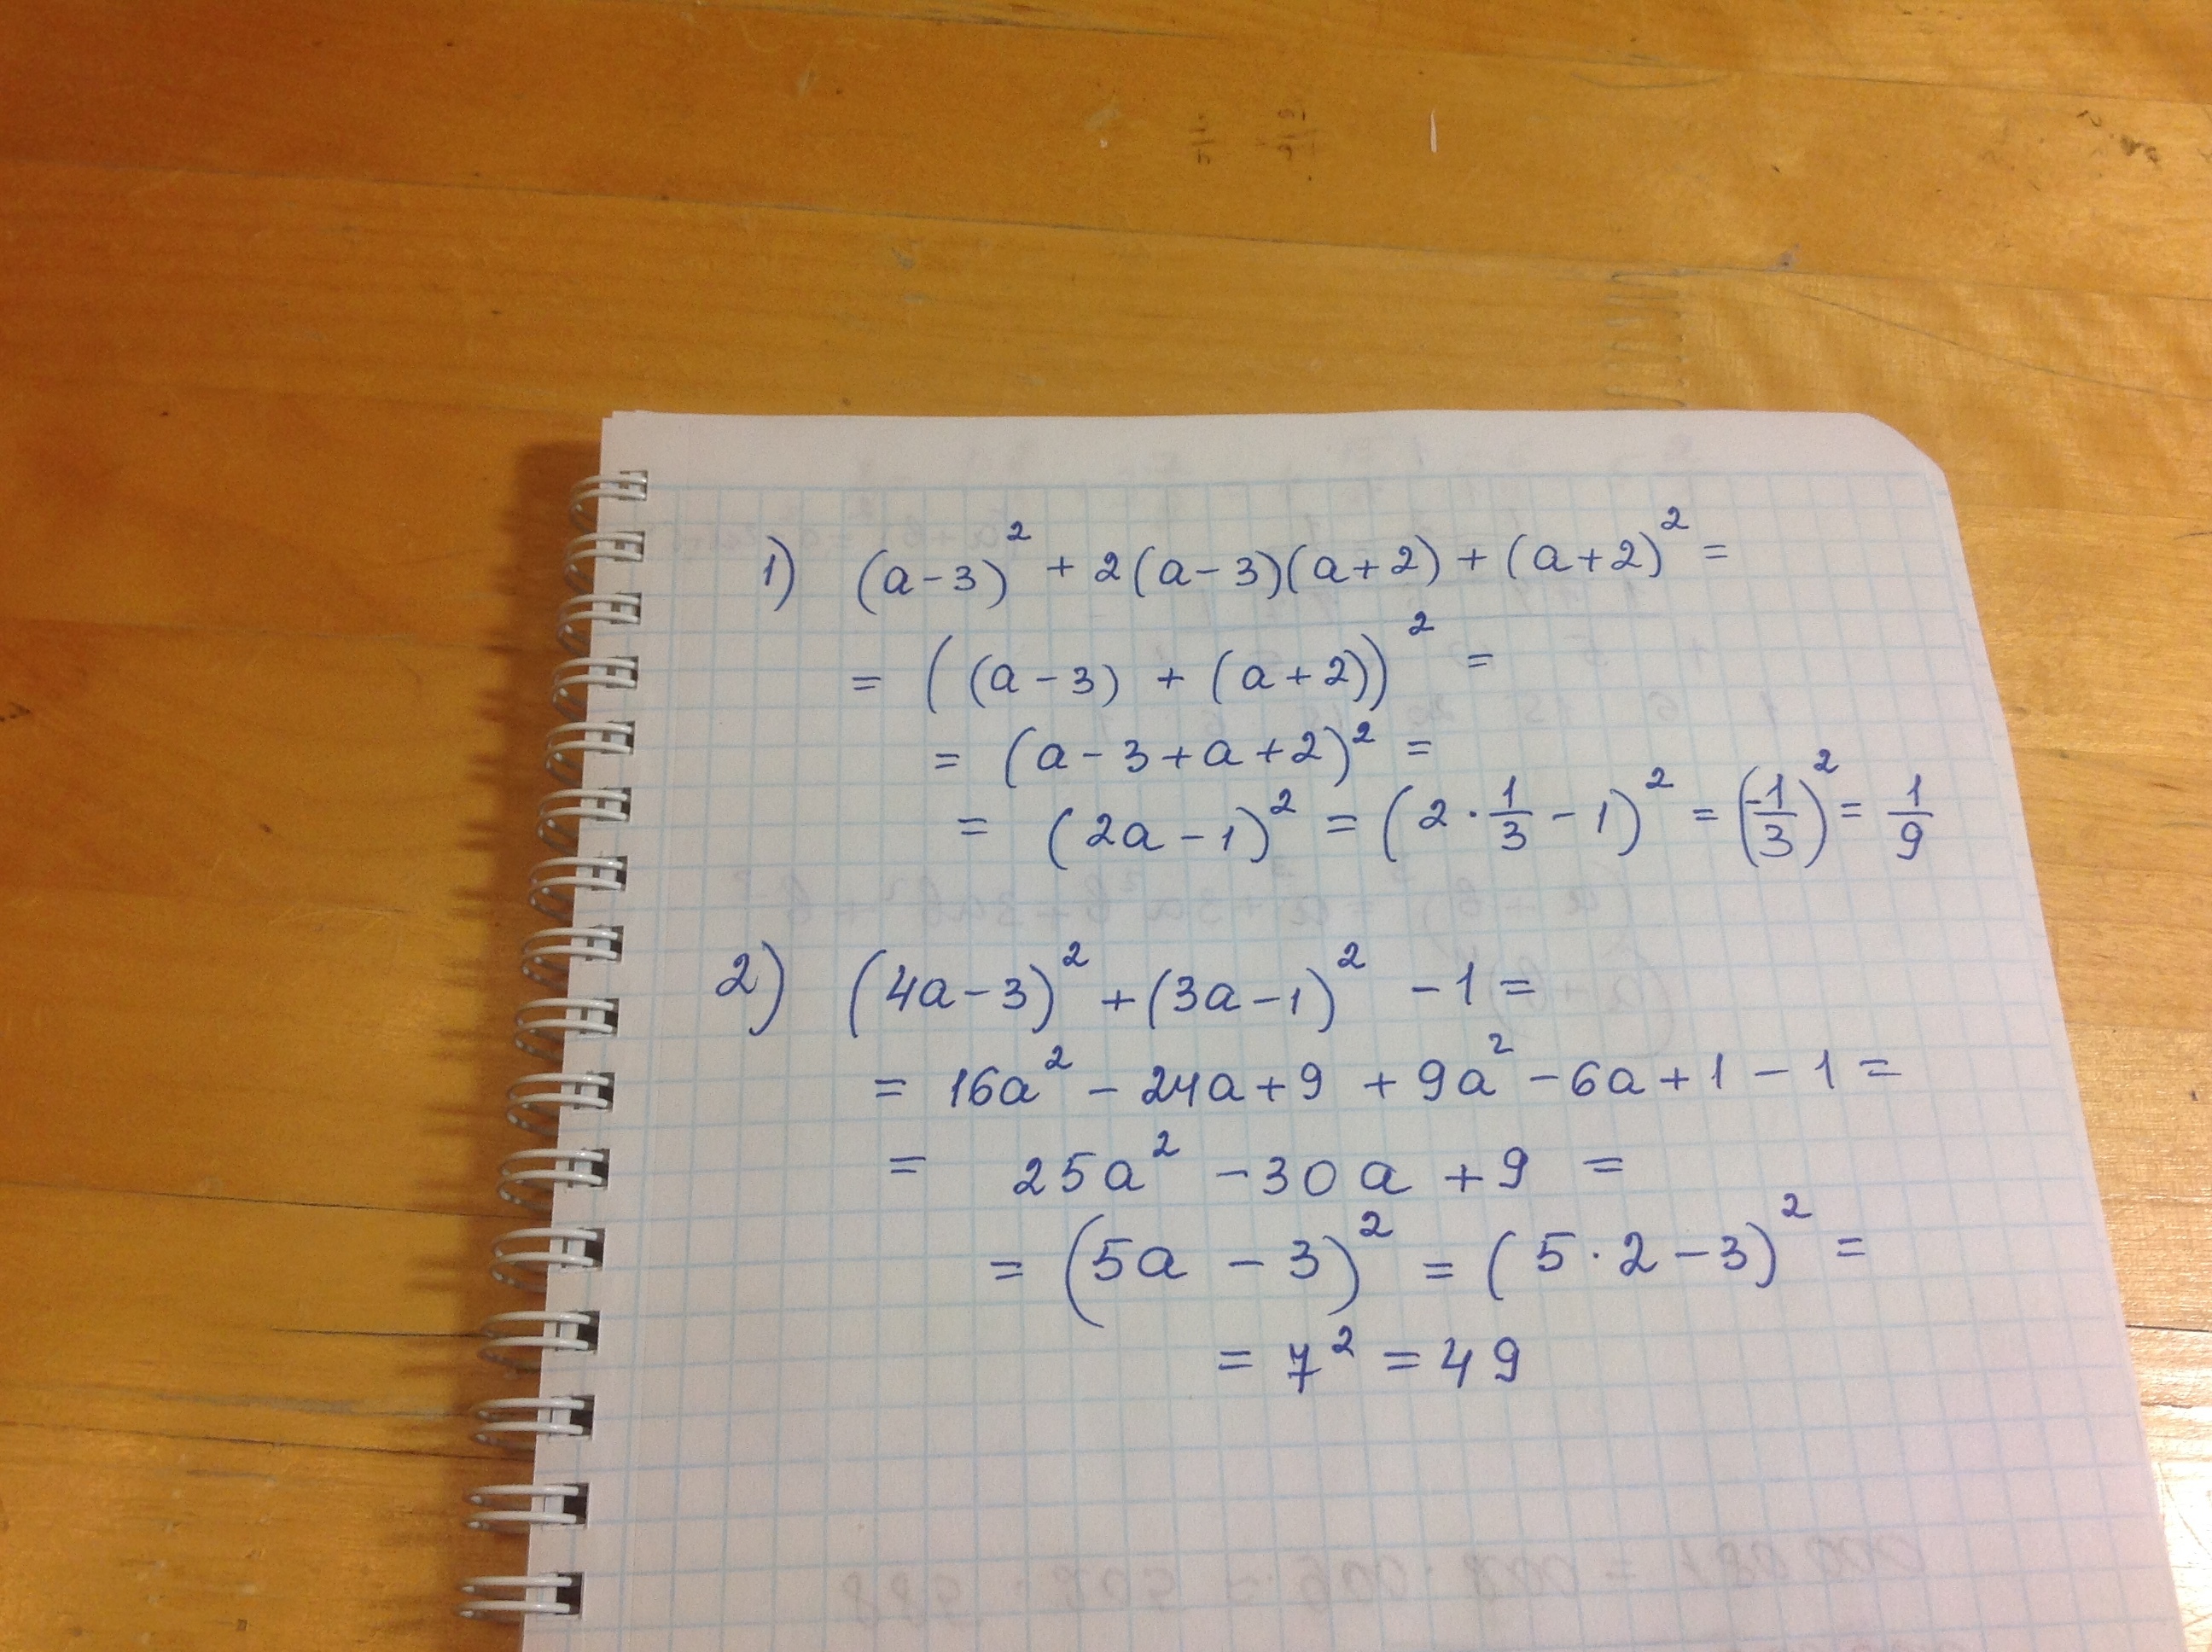 1) (a-3)² + 2(a-3)(a+2) + (a+2)² =
= ((a-3) + (a+2))² =
= (a-3+a+2)² =
= (2a-1)² = (2·1/3-1)² = (-1/3)² = 1/9
2) (4a-3)² + (3a-1)² - 1 =
= 16a² - 24a + 9 + 9a² - 6a + 1 - 1 =
= 25a² - 30a + 9 =
= (5a - 3)² = (5·2-3)² =
= 7² = 49